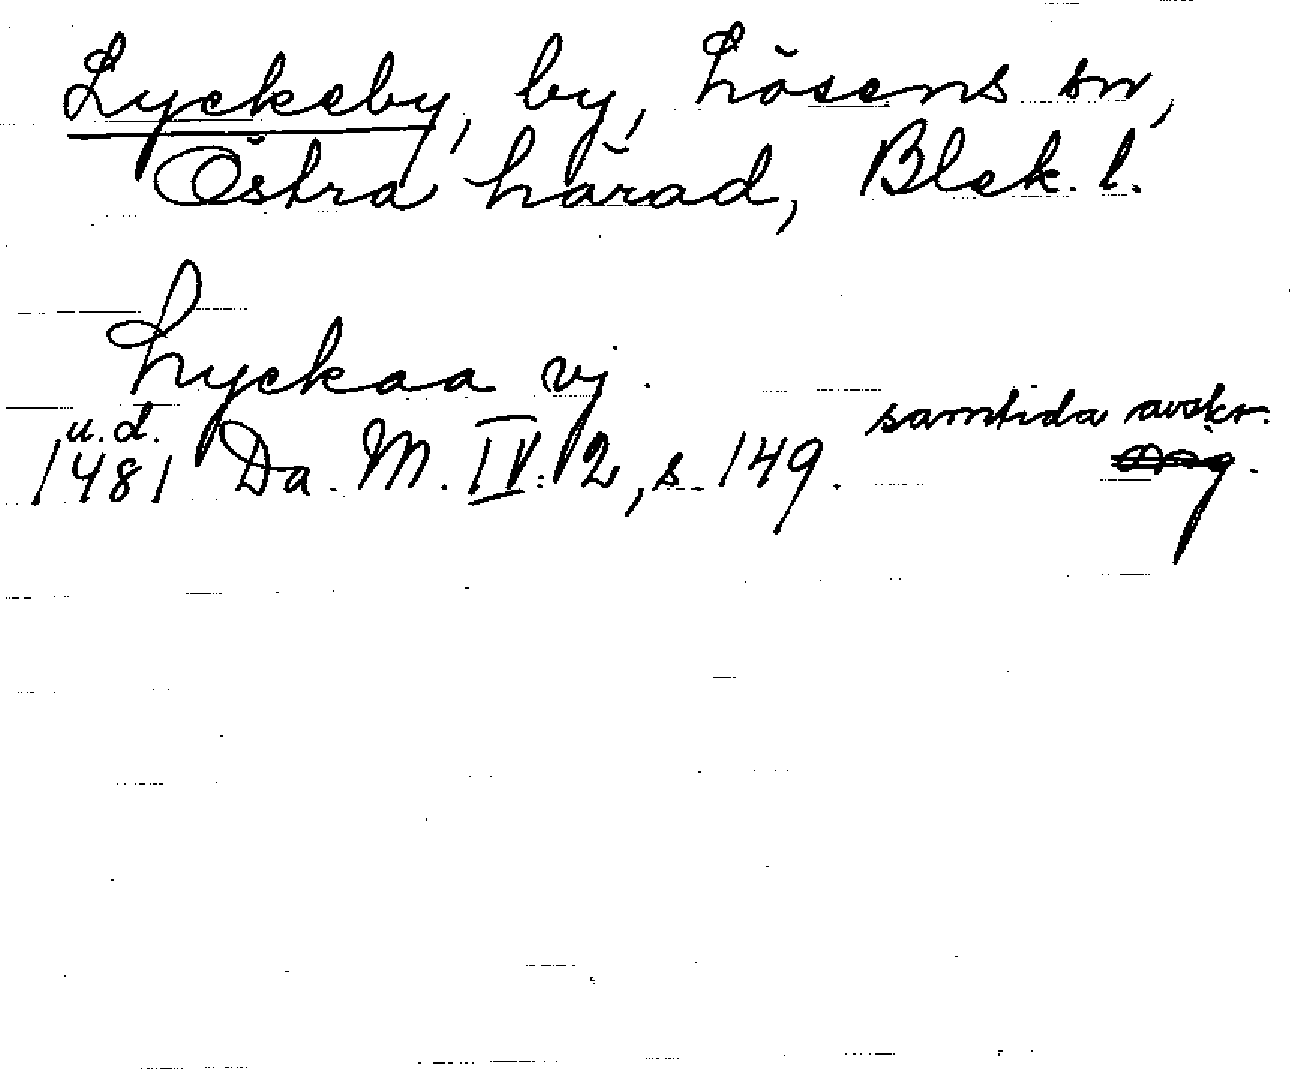 Lyckeby, by, Lösens sn,
Östra härad, Blek. l.
Lyckaa vj.
u.d. samtida avskr.
1481 Da. M. IV: 2, s. 149. Org.